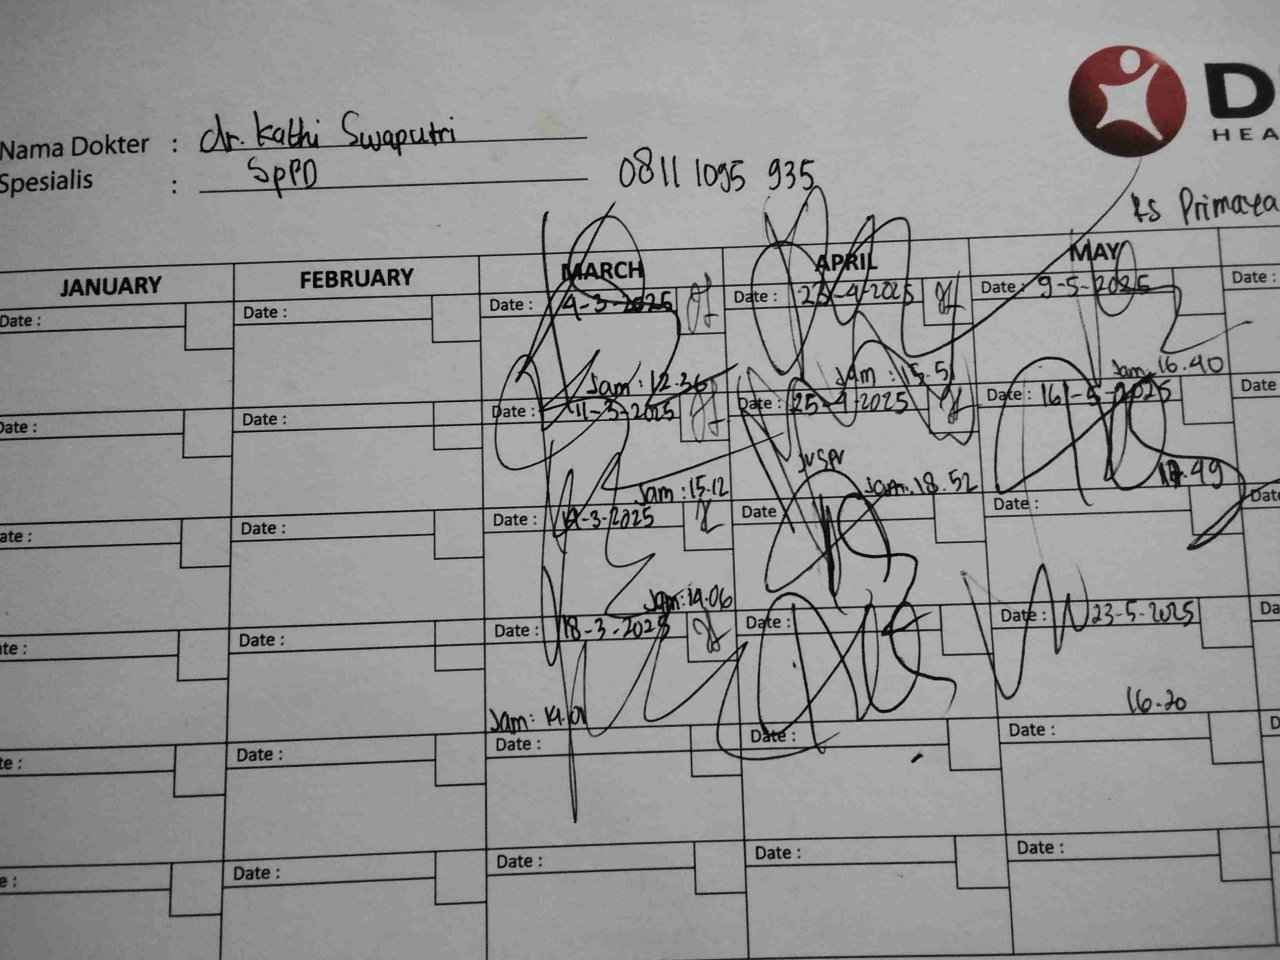 Nama Dokter : dr. Kathi Swaputri
Spesialis : SpPD
0811 1095 935
HEA
RS Primaya
JANUARY FEBRUARY MARCH APRIL MAY
Date : Date : Date : 4-3-2025 Date : 23-4-2025 Date : 9-5-2025 Date :
Jam : 12.36 Jam : 15.51 Jam 16.40
Date : Date : Date : 11-3-2025 Date : 25-4-2025 Date : 16-5-2025 Date
Jam : 15.12 Jam. 18.52 17.49
Date : Date : -3-2025 Date Date : Date
Jam: 14.06
Date : Date : 18-3-2025 Date : Date : 23-5-2025
Jam: 14.01 16.20
Date : Date : Date : Date :
Date : Date : Date : Date :